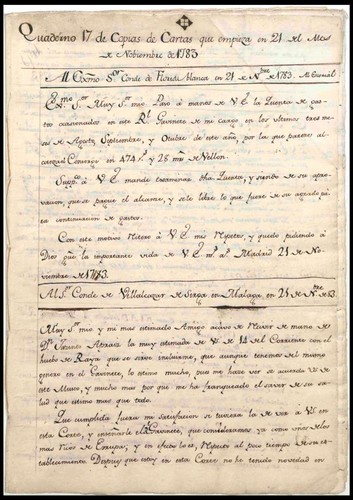 Quaderno 17 de Copias de Cartas que empieza en 21 del Mes
de Nobiembre de 1783
Al Exc.mo S.or Conde de Florida blanca en 21 de N.bre de 1783. Al Escorial
Ex.mo S.or Muy S.or mio Paso á manos de V E la Quenta de gas-
tos ocasionados en este R.l Gavinete de mi cargo en los ultimos tres me-
ses de Agosto, Septiembre, y Otubre de este año, por la que parece al-
canzar Conmigo en 474 r.s y 28 mrs de Vellon.
Supp.co á V E mande examinar dha Quenta, y siendo de su apro-
vacion, que se pague el alcanze, y se le libre lo que fuere de su agrado pa-
ra continuacion de gastos.
Con este motivo Ritero á V E mis Respetos, y quedo pidiendo á
Dios que la importante vida de V E m.s a.s Madrid 21 de No-
viembre de 1783.
Al S.or Conde de Villalcazar de Sirga en Malaga, en 21 de N.bre de 83
Muy S.or mio y mi mas estimado Amigo acavo de recivir de mano de
D.n la muy estimada de V de 14 del Corriente con el
hucho de Raya que se sirve embiarme, que aunque tenemos del mismo
genero en el Gavinete, lo estimo mucho, pues me hace ver se acuerda V de
este Museo, y mucho mas por que me ha franqueado el saver de su sa-
lud que estimo mas que todo.
Que cumplida fuera mi satisfacion si tuviera la de ver á V en
esta Corte, y enseñarle el Gavinete, que consideramos ya como uno de los
mas Ricos de Europa, y en efecto lo es, respecto al poco tiempo de su es-
tablecimiento Despues que estoy en esta Corte no he tenido novedad en